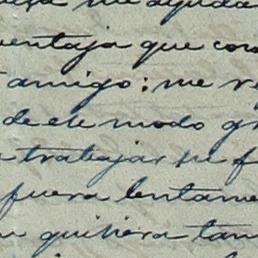 me ayuda
ventaja que con
amigo: me re
de ese modo gr
trabajar se f
fuera lentame
quisiera tam